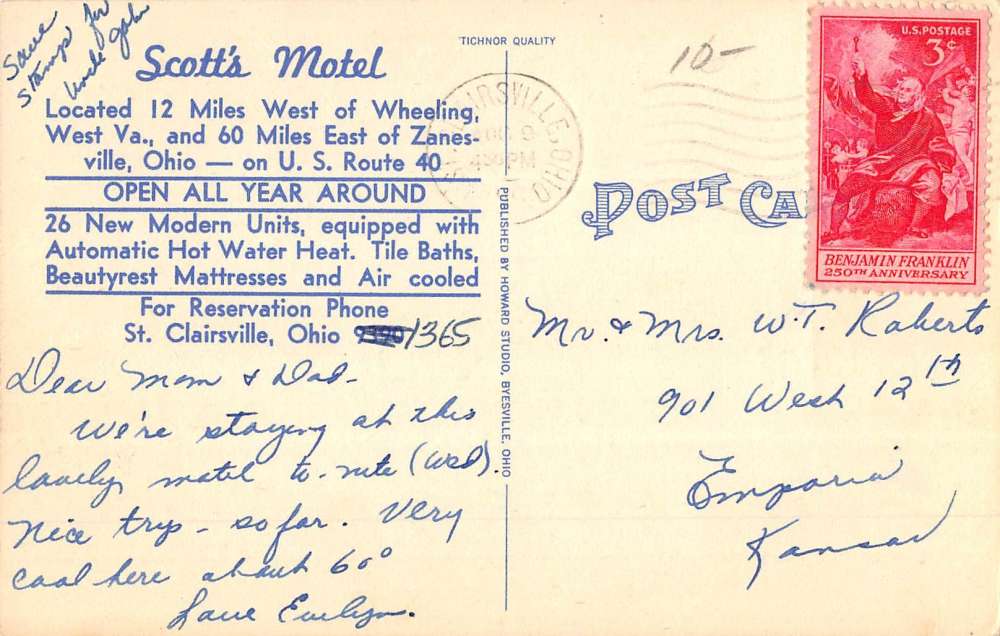 Save
stamp for
Uncle John
TICHNOR QUALITY
Scott's Motel
Located 12 Miles West of Wheeling,
West Va., and 60 Miles East of Zanes-
ville, Ohio — on U. S. Route 40
OPEN ALL YEAR AROUND
26 New Modern Units, equipped with
Automatic Hot Water Heat. Tile Baths,
Beautyrest Mattresses and Air cooled
For Reservation Phone
St. Clairsville, Ohio 1365
Dear Mom & Dad-
We're staying at this
lovely motel to-nite (Wed).
Nice trip - so far. Very
cool here about 60°
Love Evelyn.
PUBLISHED BY HOWARD STUDIO, BYESVILLE, OHIO
10-
CLAIRSVILLE, OHIO
PM
POST CA
U.S. POSTAGE
3¢
BENJAMIN FRANKLIN
250TH ANNIVERSARY
Mr. & Mrs. W.T. Roberts
901 West 12th
Emporia
Kansas